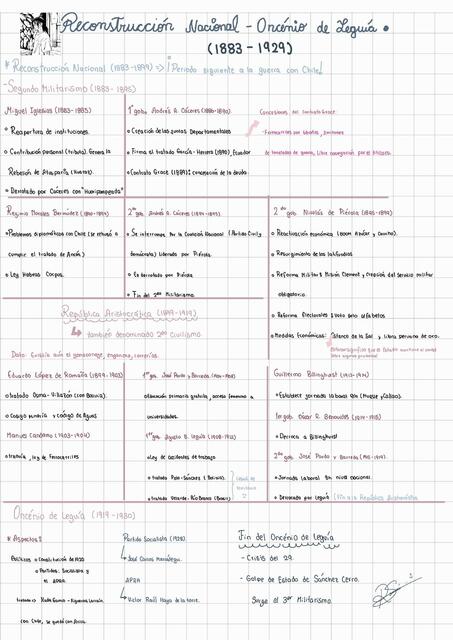 Reconstrucción Nacional - Oncenio de Leguía.
(1883 - 1929)
* Reconstrucción Nacional (1883-1899) → ¡Periodo siguiente a la guerra con Chile!
- Segundo Militarismo (1883 - 1895)
Miguel Iglesias (1883 - 1885)
Reapertura de instituciones.
Contribución personal (tributo). Genera la
Rebelión de Atusparia (Huaraz).
Derrotado por Cáceres con "Huaripampeada"
1er gob. Andrés A. Cáceres (1886-1890)
Creación de las Juntas Departamentales
Firma el tratado García - Herrera (1890), Ecuador
Contrato Grace (1889): cancelación de la deuda.
Concesiones del Contrato Grace:
- Ferrocarriles
de toneladas de guano, Libre navegación por el Titicaca.
Regimio Morales Bermúdez (1890 - 1894)
Problemas diplomáticos con Chile (se rehusó a
cumplir el tratado de Ancón)
Ley Habeas Corpus.
2do gob. Andrés A. Cáceres (1894 - 1895)
Es interrumpido por la Coalición Nacional (Partido Civil y
demócrata) liderado por Piérola.
Es derrotado por Piérola
Fin del 2do Militarismo.
2do gob. Nicolás de Piérola (1895 - 1899)
Reactivación económica (Boom Azúcar y Caucho).
Resurgimiento de los latifundios
Reforma Militar: Misión Clement y creación del servicio militar
obligatorio.
Reforma Electoral: Voto solo alfabetos
Medidas Económicas: Estanco de la Sal y Libra peruana de oro.
República Aristocrática (1899-1919)
↳ también denominado 2do Civilismo
Dato: Existía aún el yanaconaje, enganche, correrías.
Eduardo López de Romaña (1899 - 1903)
tratado Osma - Villazón (con Bolivia).
Código minería y código de Aguas
Manuel Candamo (1903 - 1904)
tranvía, ley de Ferrocarriles
1er gob. José Pardo y Barreda (1904 - 1908)
Educación primaria gratuita, acceso femenino a
universidades.
1er gob. Augusto B. Leguía (1908 - 1912)
Ley de accidentes de trabajo
tratado Polo - Sánchez (Bolivia).
tratado Velarde - Río Branco (Brasil)
Guillermo Billinghurst (1912 - 1914)
Establece jornada laboral 8h (Muelle y Callao).
1er gob. Oscar R. Benavides (1914 - 1915)
Derroca a Billinghurst
2do gob. José Pardo y Barreda (1915 - 1919).
Jornada laboral 8h nivel nacional.
Derrocado por Leguía (Fin a la República Aristocrática
Oncenio de Leguía (1919 - 1930)
* Aspectos:
Políticos: Constitución de 1920
Partidos: Socialista y
el APRA
tratados: Kellogg
con Chile, se quedó con Arica.
Partido Socialista (1928).
↳ José Carlos Mariátegui.
APRA
↳ Víctor Raúl Haya de la Torre.
Fin del Oncenio de Leguía
- Crisis del 29.
- Golpe de Estado de Sánchez Cerro.
Surge el 3er Militarismo.